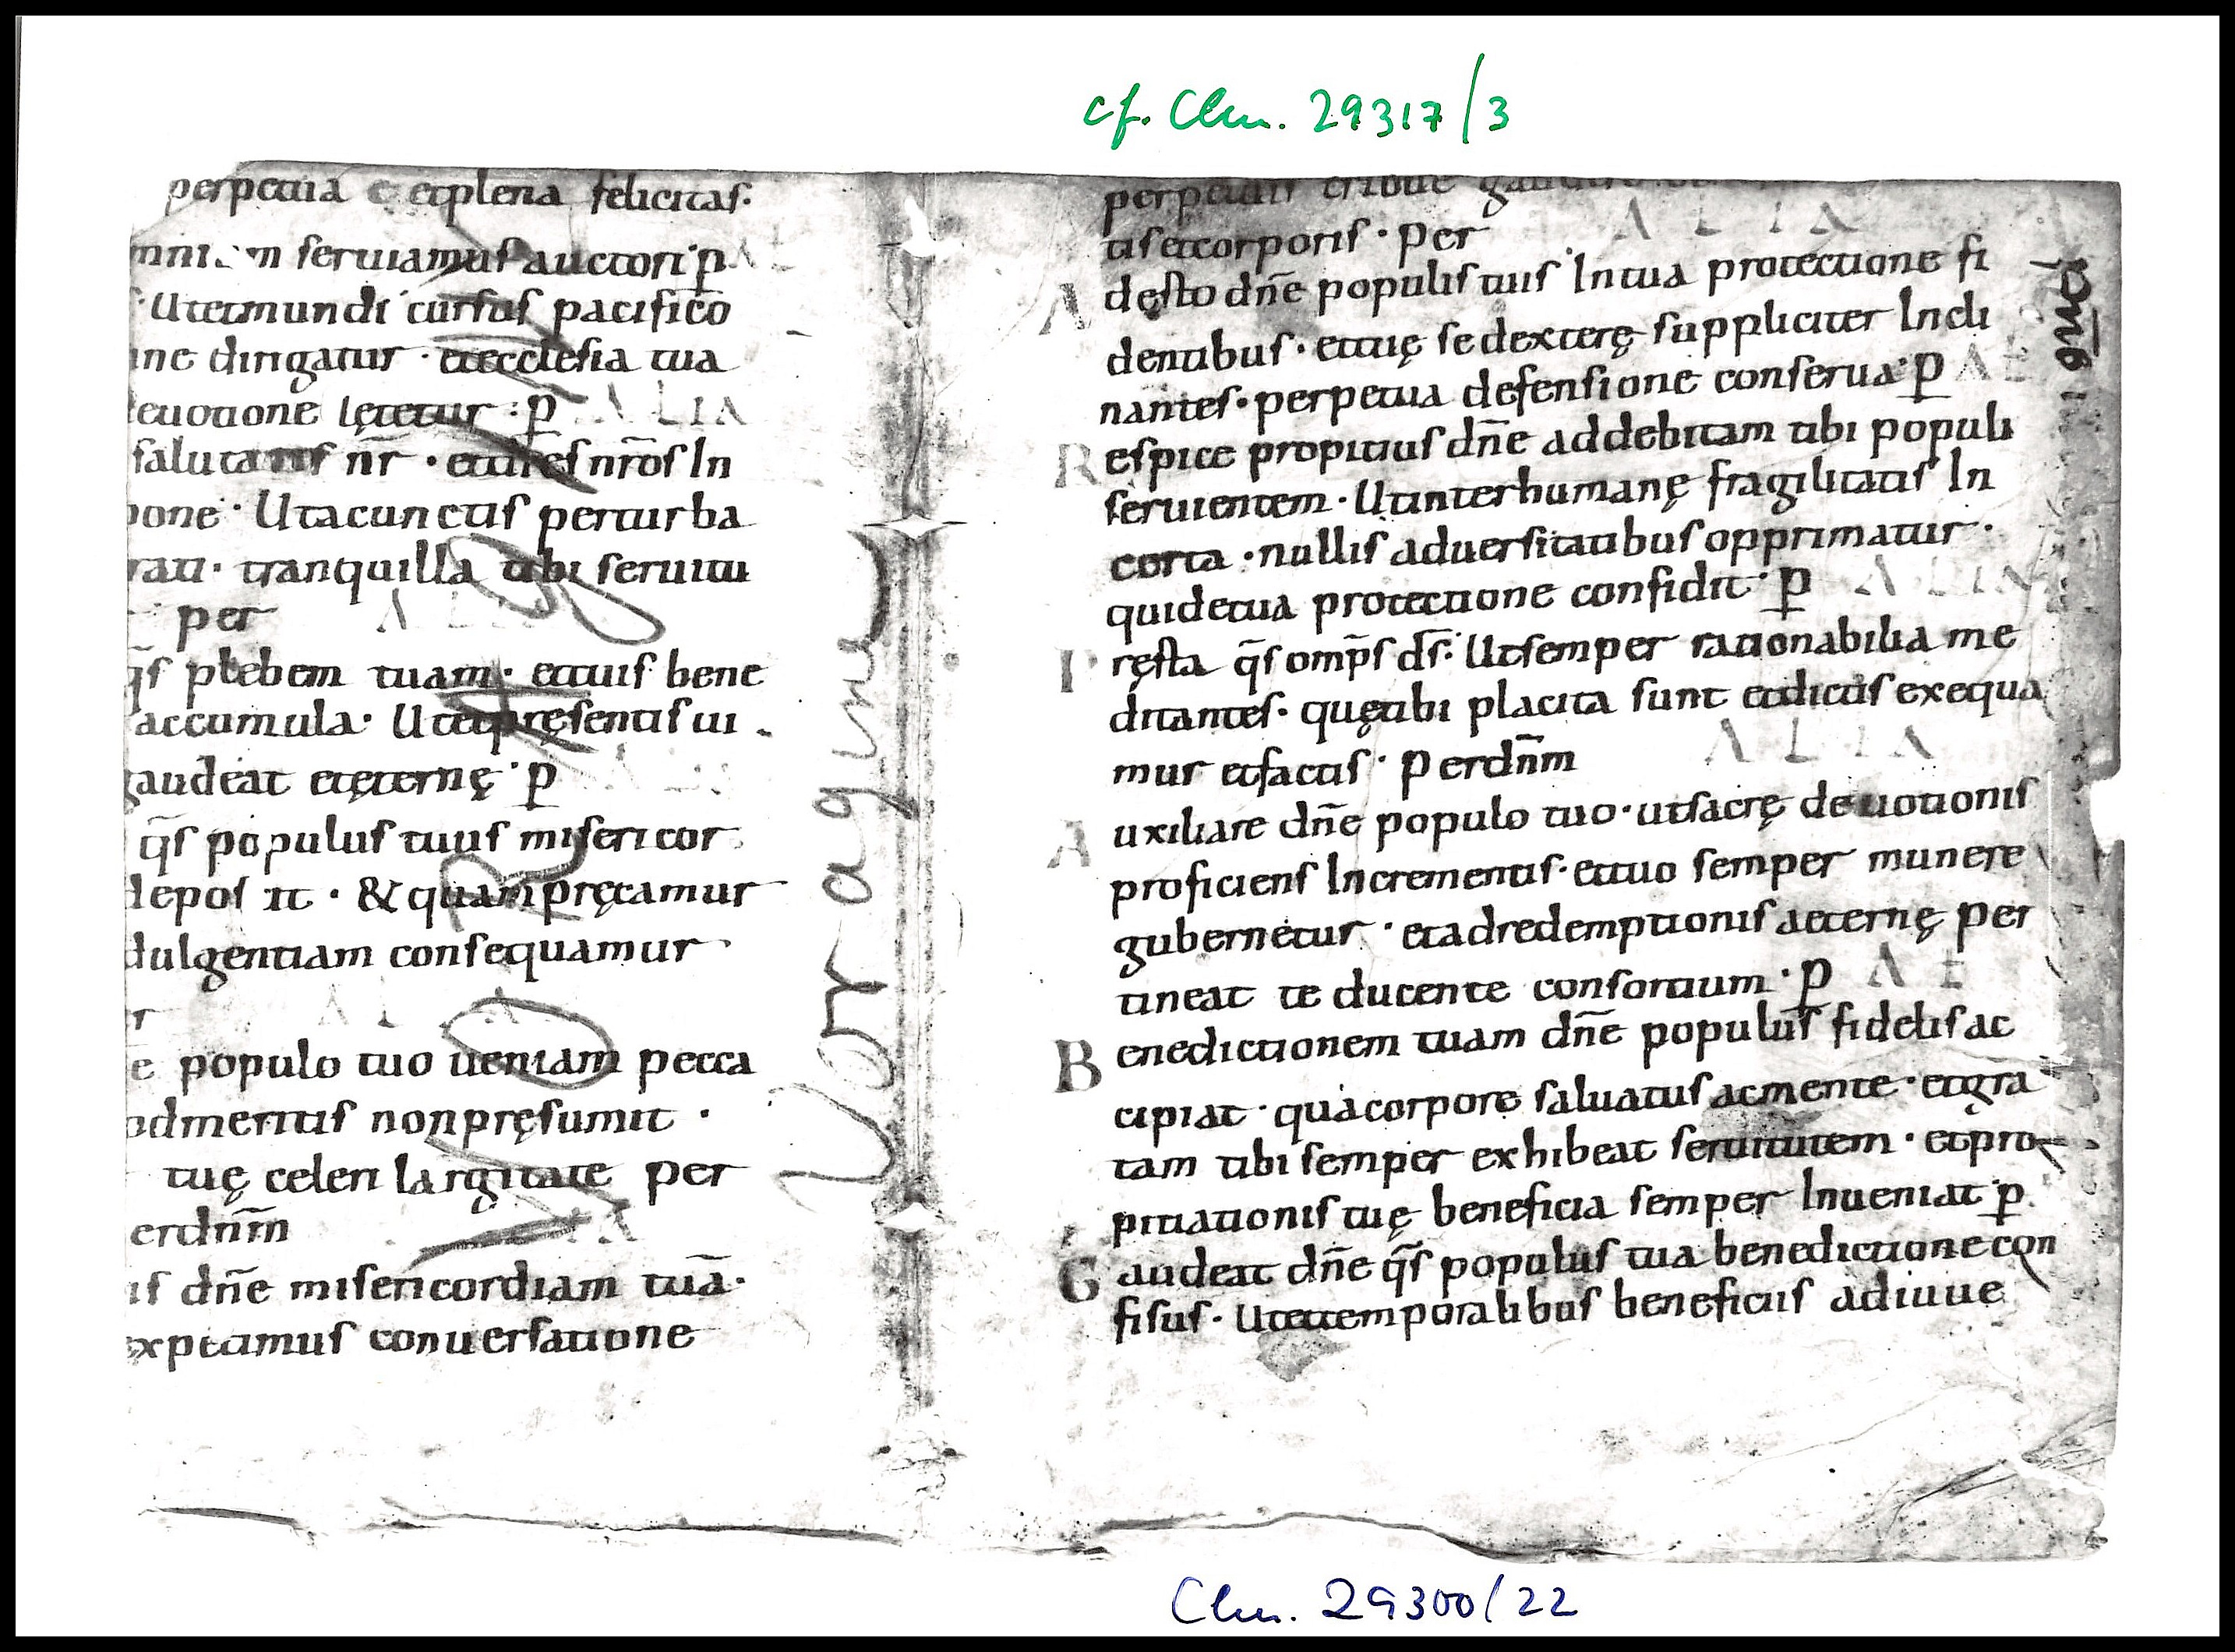 cf. Clm. 29317/3
perpetua & etplena felicitaſ·
ſeruiamuſ auctori· p̲ AL
Utetmundi curſuſ pacifico
ine dirigatur · etecclesia tua
euotione lętetur : p̲ ALIA
ſalutariſ nr̄ · etdieſ nr̄oſ In
one · Utacunctiſ perturba
rati · tranquilla tibi ſeruitu
per ALIA
q̄ſ plebem tuam · ettuiſ bene
accumula · Utetpręſentiſ ui
gaudeat etęternę · p̲ ALIA
q̄ſ populuſ tuuſ miſericor
depoſcit · & quampręcamur
dulgentiam conſequamur
r ALIA
e populo tuo ueniam pecca
admeritiſ nonpręſumit ·
tuę celeri largitate per
erdn̄m ALIA
iſ dn̄e miſericordiam tuā ·
expetimuſ conuerſatione
Vor agine
perpetuiſ tribue
tiſetcorporiſ · Per ALIA
Adeſto dn̄e populiſ tuiſ Intua protectione fi
dentibuſ · ettuę ſe dexterę ſuppliciter Incli
nanteſ · perpetua defenſione conſerua · p̲ AL
Reſpice propitiuſ dn̄e addebitam tibi populi
ſeruientem · Utinterhumanę fragilitatiſ In
certa · nulliſ aduerſitatibuſ opprimatur ·
quidetua protectione confidit · p̲ ALIA
Pręſta q̄ſ omp̄ſ dſ̄ · Utſemper rationabilia me
ditanteſ · quętibi placita ſunt etdictiſ exequa
mur etfactiſ · Perdn̄m ALIA
Auxiliare dn̄e populo tuo · utſacrę deuotioniſ
proficienſ Incrementiſ · ettuo ſemper munere
gubernetur · etadredemptioniſ aeternę per
tineat te ducente conſortium · p̲ AL
Benedictionem tuam dn̄e populuſ fidelis ac
cipiat · quacorpore ſaluatuſ acmente · etgra
tam tibi ſemper exhibeat ſeruitutem · etpro
pitiationiſ tuę beneficia ſemper Inueniat p̲
Gaudeat dn̄e q̄ſ populuſ tua benedictione con
fiſuſ · Utettemporalibuſ beneficiiſ adiuue
Clm. 29300/22